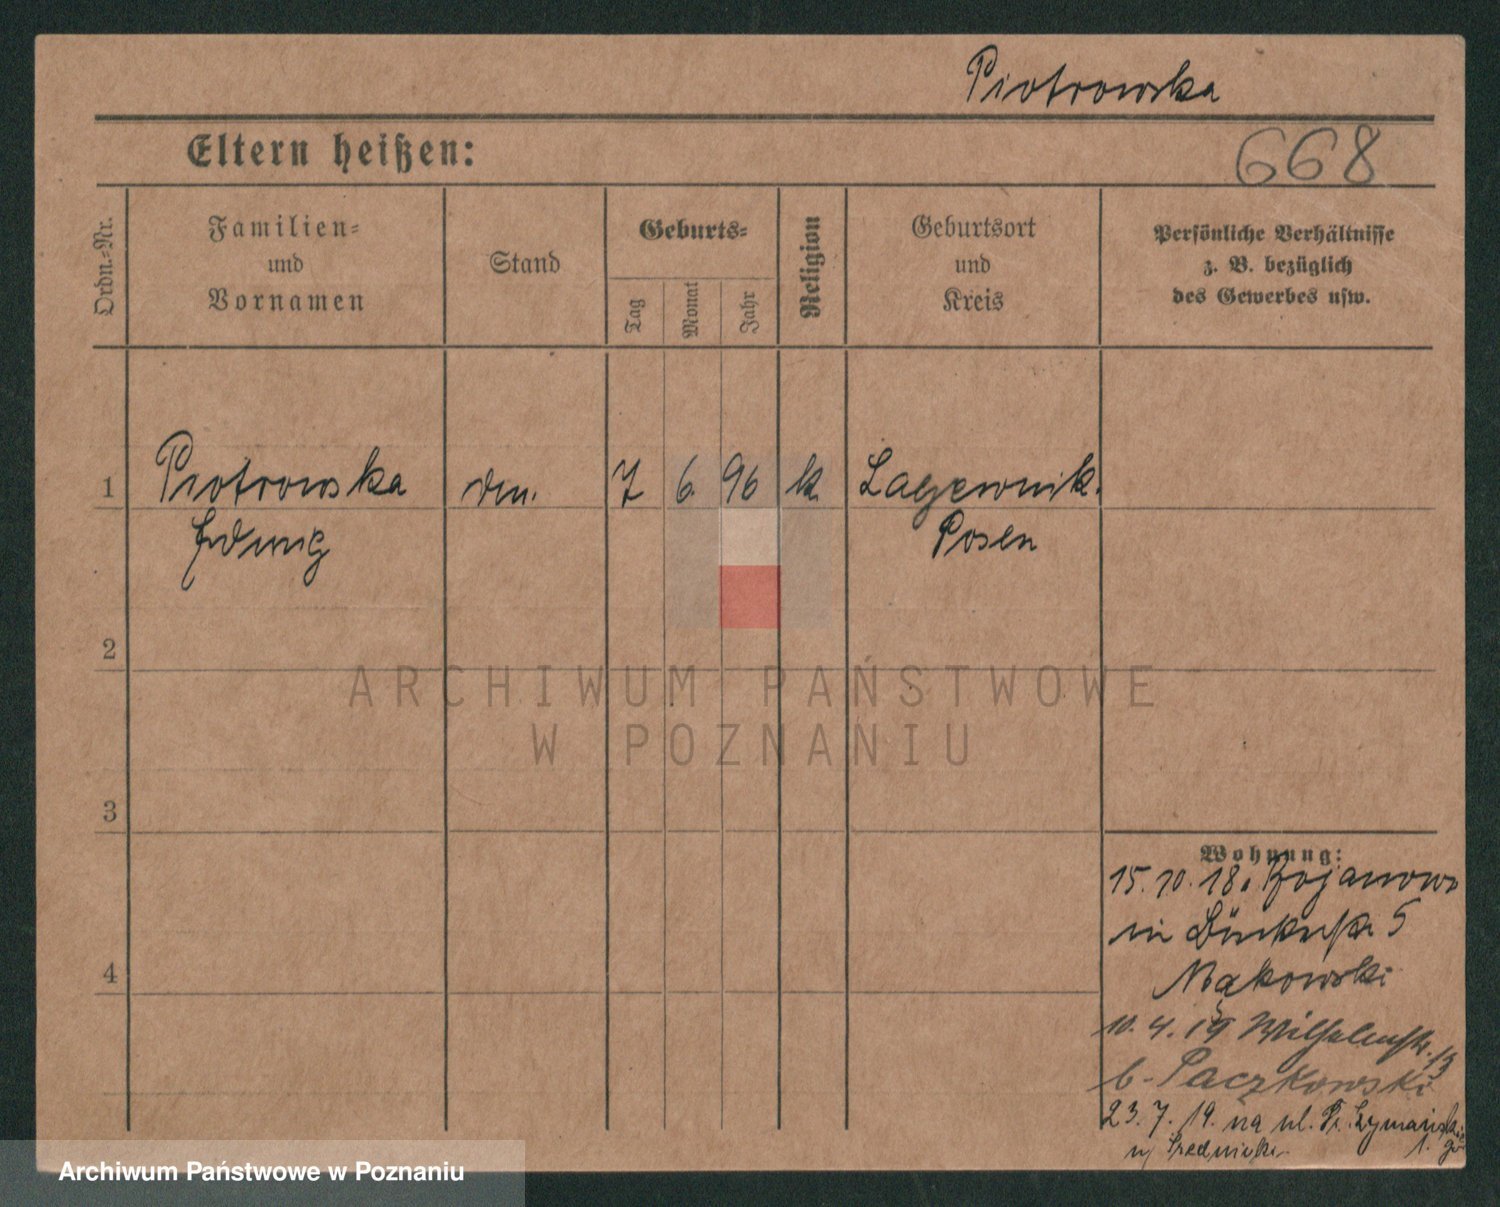 Piotrowska
Eltern heißen:
668
Ordn.-Nr.
Familien-
und
Vornamen
Stand
Geburts-
Tag
Monat
Jahr
Religion
Geburtsort
und
Kreis
Persönliche Verhältnisse
z. B. bezüglich
des Gewerbes usw.
1 Piotrowska 7 6. 96 k.
Posen
2
3
4
ARCHIWUM PAŃSTWOWE
W POZNANIU
Wohnung:
15. 10. 18. Bojanowo
5
Mąkowski
10. 4. 19 Wilhelmstr. 13
b. Paczkowski
23. 7. 19. na ul.
Archiwum Państwowe w Poznaniu